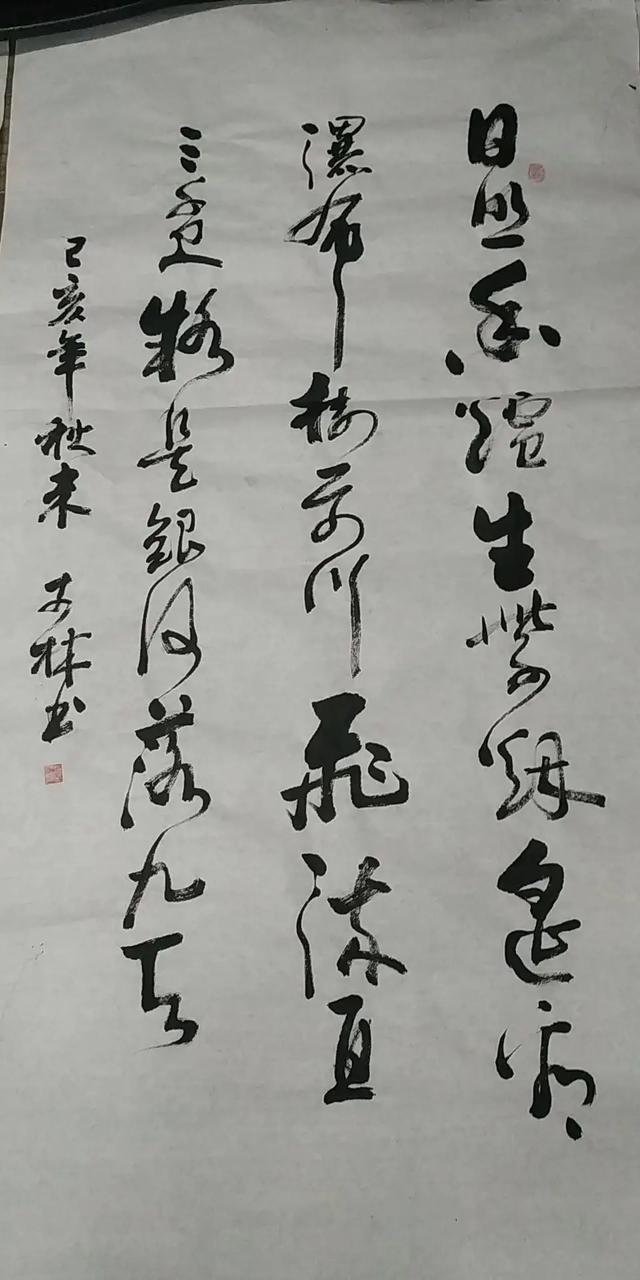 日照香炉生紫烟遥看
瀑布挂前川飛流直
三千尺疑是銀河落九天
己亥年秋末 林书